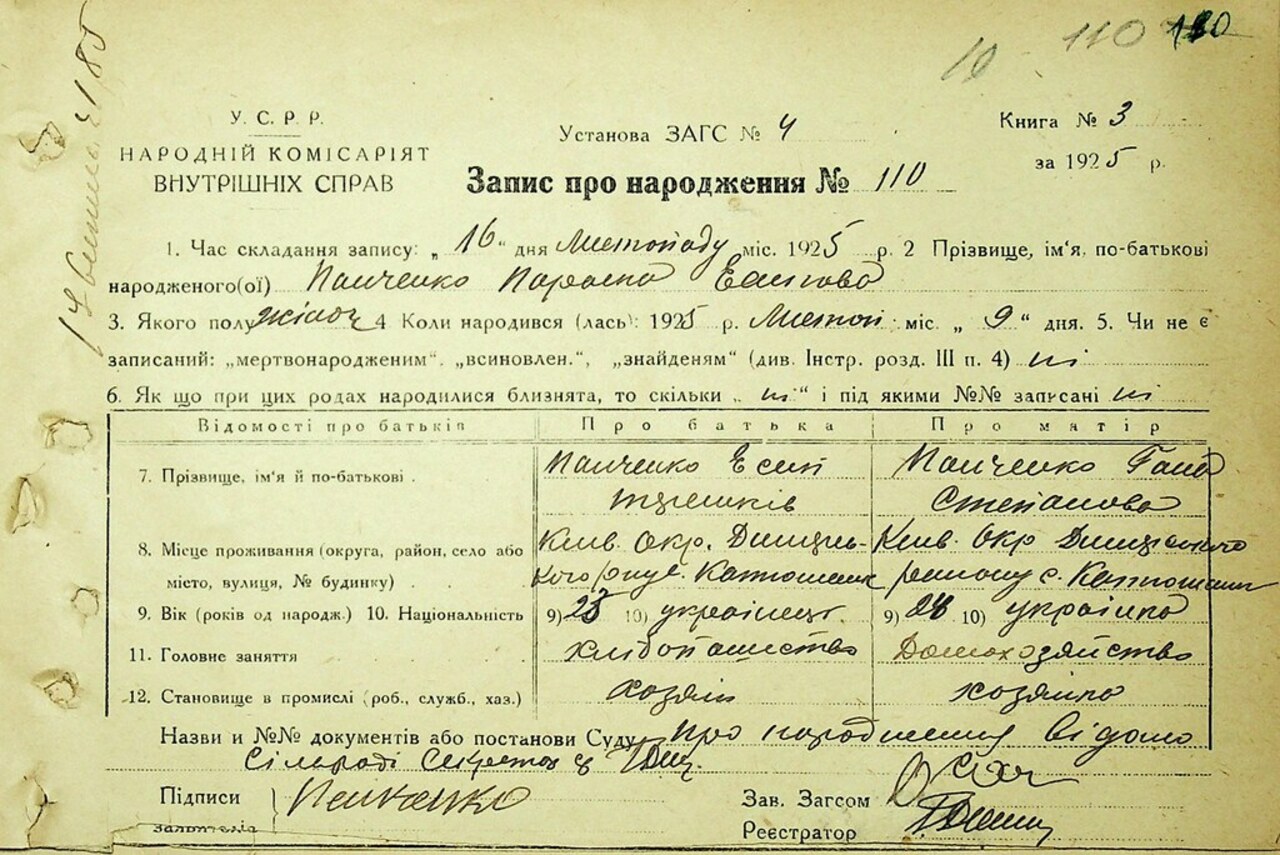 10 110 110
У. С. Р. Р.
НАРОДНІЙ КОМІСАРІЯТ
ВНУТРІШНІХ СПРАВ
Установа ЗАГС № 4
Книга № 3
за 1925 р.
Запис про народження № 110
1. Час складання запису: „ 16 “ дня Листопаду міс. 1925 р. 2 Прізвище, ім'я, по-батькові
народженого(ої) Панченко Параска Есипова
3. Якого полу жіноч 4 Коли народився (лась): 1925 р. Листоп міс. „ 9 “ дня. 5. Чи не є
записаний: „мертвонародженим“, „всиновлен.“, „знайденям“ (див. Інстр. розд. III п. 4) ні
6. Як що при цих родах народилися близнята, то скільки „ ні “ і під якими №№ записані ні
Відомості про батьків Про батька Про матір
7. Прізвище, ім'я й по-батькові . Панченко Есип Панченко Гана
Степанова
8. Місце проживання (округа, район, село або Київ. Окр. Київ. Окр
місто, вулиця, № будинку) . . району с.
9. Вік (років од народж.) 10. Національність 9) 28 10) українец. 9) 28 10) українка
11. Головне заняття хлібопашество Домохозяйство
12. Становище в промислі (роб., служб., хаз.) хозяін хозяйка
Назви и №№ документів або постанови Суду про народження відомо
Сільраді
Підписи Панченко Зав. Загсом
заявителів Реєстратор